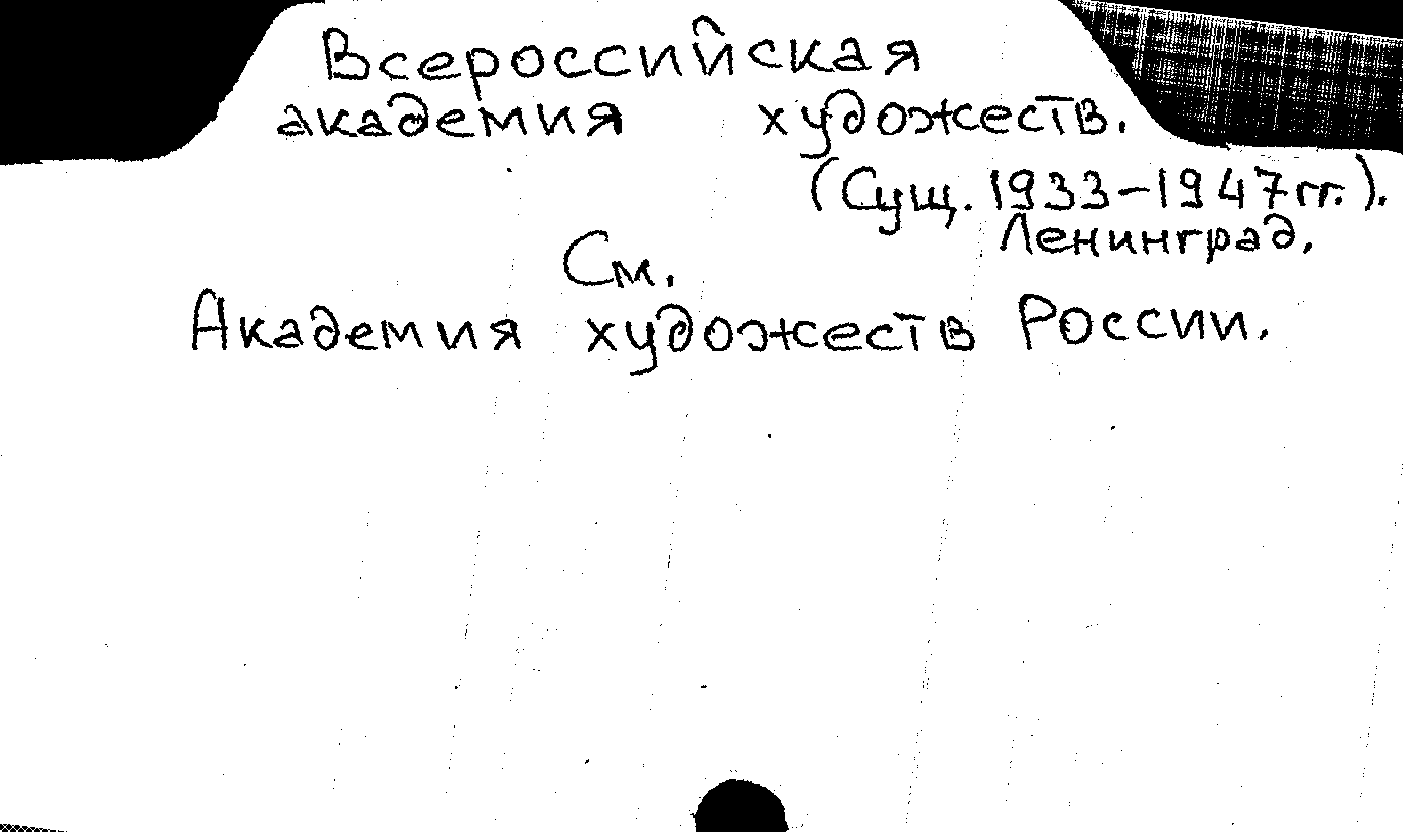 Всероссийская
академия художеств.
(Сущ. 1933-1947 гг.).
Ленинград.
См.
Академия художеств России.